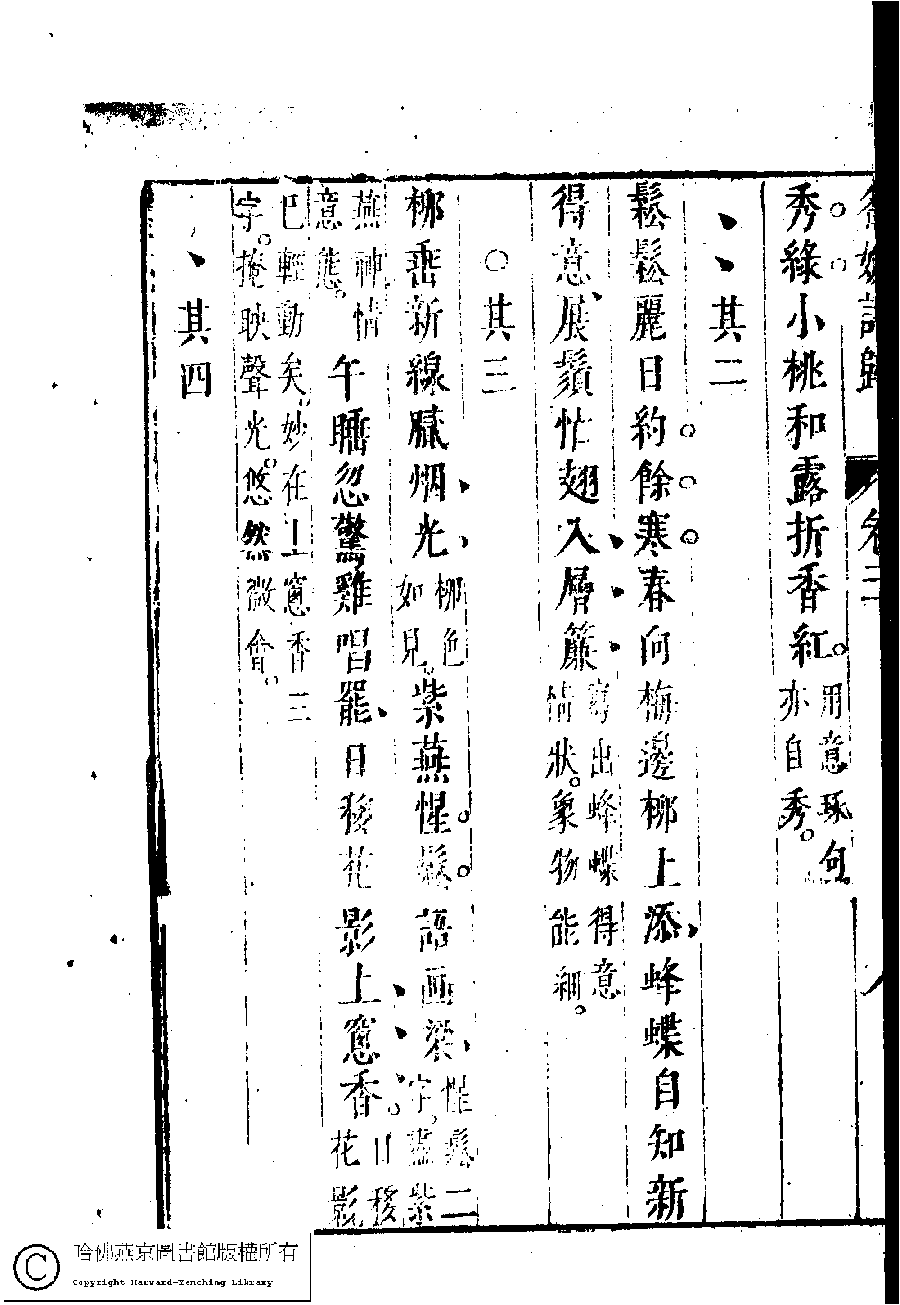 秀綠小桃和露折香紅用意琢句亦自秀
其二
鬆鬆麗日約餘寒春向梅邊柳上添蜂蝶自知新
得意展鬚忙翅入層簾寫出蜂蝶得意情狀象物能細
其三
柳垂新線臁烟光柳色如見紫燕惺鬆語画梁惺鬆二字盡紫
燕神情意態午睡忽驚雞唱罷日移花影上窻香日移花影
巳輕動矣妙在上窻香三字掩映聲光悠然微會
其四
哈佛燕京圖書館版權所有
Copyright Harvard-Yenching Library